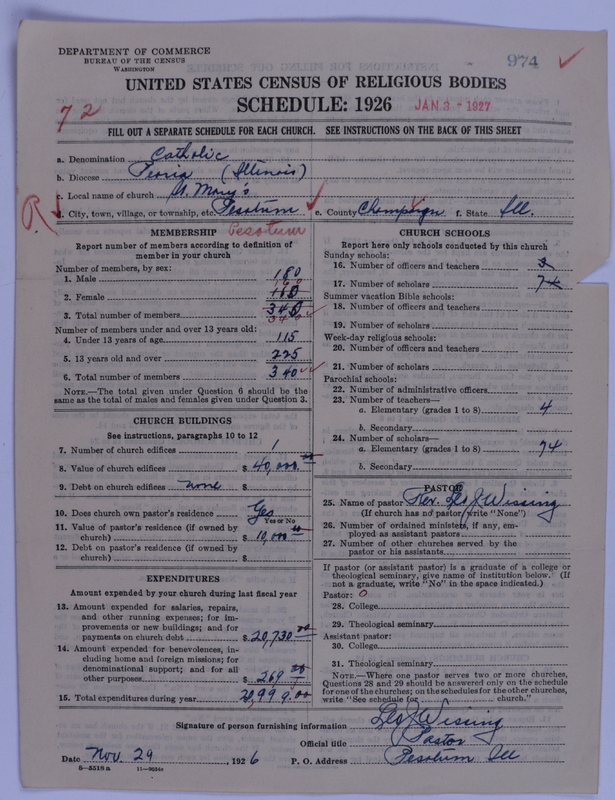 DEPARTMENT OF COMMERCE
BUREAU OF THE CENSUS
WASHINGTON
974
UNITED STATES CENSUS OF RELIGIOUS BODIES
SCHEDULE: 1926 JAN 3 - 1927
72
FILL OUT A SEPARATE SCHEDULE FOR EACH CHURCH. SEE INSTRUCTIONS ON THE BACK OF THIS SHEET
a. Denomination Catholic
b. Diocese Peoria (Illinois)
c. Local name of church St. Mary's
R
d. City, town, village, or township, etc. Pesotum e. County Champaign f. State Ill.
Pesotum
MEMBERSHIP
Report number of members according to definition of
member in your church
Number of members, by sex:
1. Male 180
2. Female 160
3. Total number of members 340
340
Number of members under and over 13 years old:
4. Under 13 years of age 115
5. 13 years old and over 225
6. Total number of members 340
NOTE.—The total given under Question 6 should be the
same as the total of males and females given under Question 3.
CHURCH BUILDINGS
See instructions, paragraphs 10 to 12
7. Number of church edifices 1
8. Value of church edifices $ 40,000.00
9. Debt on church edifices none $
10. Does church own pastor's residence? Yes
Yes or No
11. Value of pastor's residence (if owned by
church) $ 10,000.00
12. Debt on pastor's residence (if owned by
church) $
EXPENDITURES
Amount expended by your church during last fiscal year
13. Amount expended for salaries, repairs,
and other running expenses; for im-
provements or new buildings; and for
payments on church debt $ 20,730 00
14. Amount expended for benevolences, in-
cluding home and foreign missions; for
denominational support; and for all
other purposes $ 269 00
15. Total expenditures during year 20,999.00
CHURCH SCHOOLS
Report here only schools conducted by this church
Sunday schools:
16. Number of officers and teachers 3
17. Number of scholars 74
Summer vacation Bible schools:
18. Number of officers and teachers
19. Number of scholars
Week-day religious schools:
20. Number of officers and teachers
21. Number of scholars
Parochial schools:
22. Number of administrative officers
23. Number of teachers—
a. Elementary (grades 1 to 8) 4
b. Secondary
24. Number of scholars—
a. Elementary (grades 1 to 8) 94
b. Secondary
PASTOR
25. Name of pastor Rev. Leo J Wissing
(If church has no pastor, write "None")
26. Number of ordained ministers, if any, em-
ployed as assistant pastors
27. Number of other churches served by the
pastor or his assistants
If pastor (or assistant pastor) is a graduate of a college or
theological seminary, give name of institution below. (If
not a graduate, write "No" in the space indicated.)
Pastor: 0
28. College
29. Theological seminary
Assistant pastor:
30. College
31. Theological seminary
NOTE.—Where one pastor serves two or more churches,
Questions 28 and 29 should be answered only on the schedule
for one of the churches; on the schedules for the other churches,
write "See schedule for church."
Signature of person furnishing information Leo J Wissing
Official title Pastor
Date Nov. 29, 1926 P. O. Address Pesotum Ill
6—5518a 11—9034a